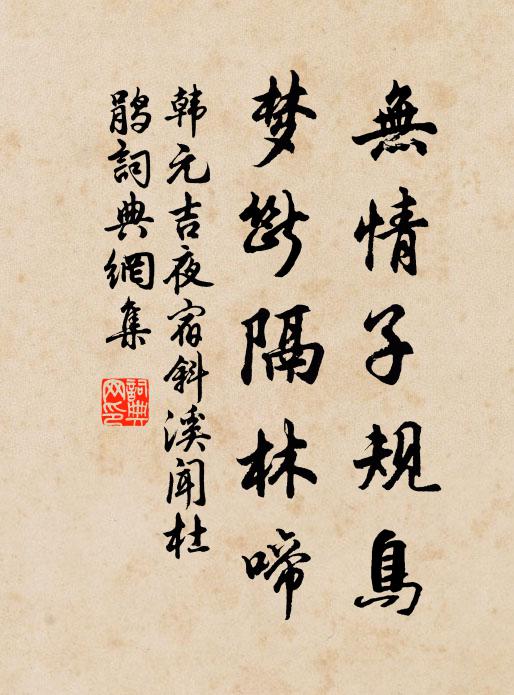 無情子規鳥
梦断隔林啼
韩元吉夜宿斜溪闻杜
鹃詞典網集
詞典
网印